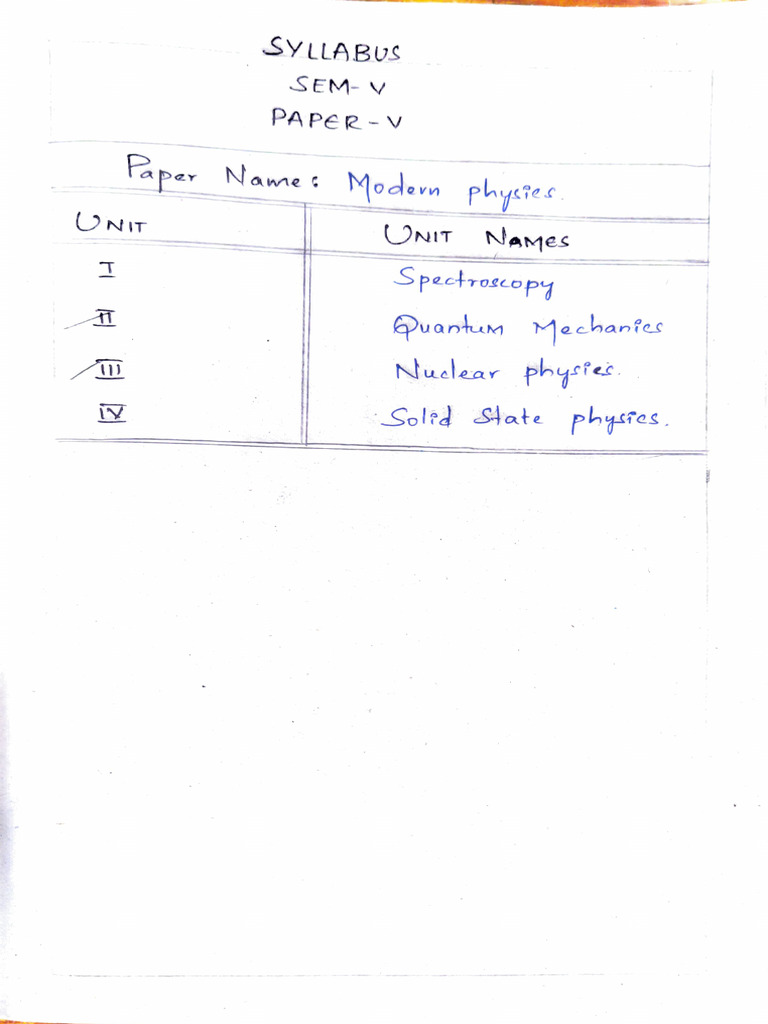 SYLLABUS
SEM-V
PAPER-V
Paper Name: Modern physics.
UNIT UNIT NAMES
I Spectroscopy
II Quantum Mechanics
III Nuclear physics.
IV Solid State physics.